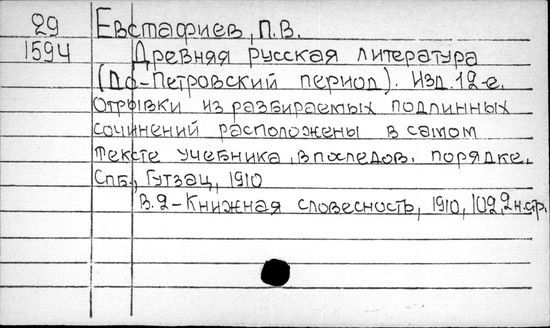 29 Евстафиев, П.В.
1594 Древняя русская литература
(До-Петровский период). Изд. 12-е.
Отрывки из разбираемых подлинных
сочинений расположены в самом
тексте учебника, в последов. порядке.
Спб., Гутзац, 1910
В.2-Книжная словесность, 1910, 102,2н.стр.